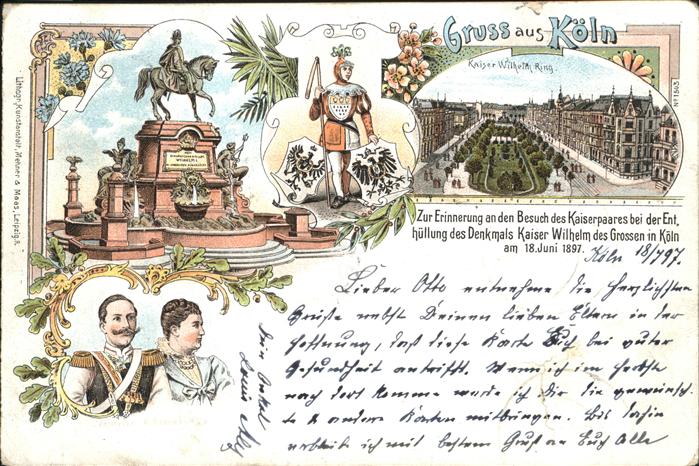 Gruss aus Köln
Kaiser Wilhelm Ring.
No 1503
Lithogr. Kunstanstalt, Metzner & Maas, Leipzig-R.
WILHELM I
Zur Erinnerung an den Besuch des Kaiserpaares bei der Ent,
hüllung des Denkmals Kaiser Wilhelm des Grossen in Köln
am 18. Juni 1897.
Köln 18/7 97.
Lieber Otto entnehme die herzlichsten
Grüße nebst Deinen lieben Eltern in der
Hoffnung, daß diese Karte Euch bei guter
Gesundheit antrifft. Wenn ich im Herbste
nach dort komme werde ich Dir die gewünsch
te & andere Karten mitbringen. Bis dahin
verbleibe ich mit bestem Gruß an Euch Alle
Dein Onkel
Louis